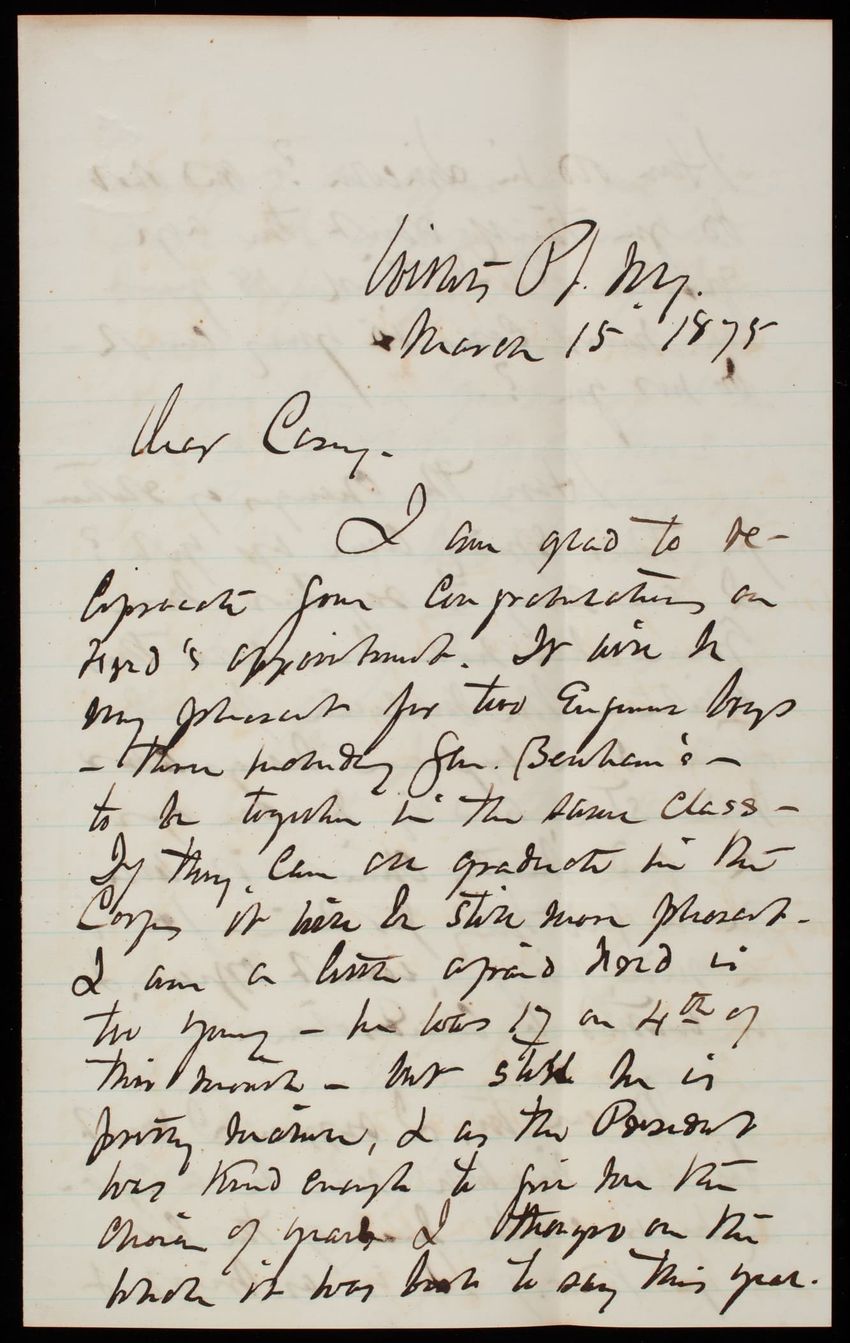 Willets Pt. N.Y.
March 15 1875
Dear Casey.
I am glad to re-
ciprocate your congratulations on
Harry's appointment. It will be
very pleasant for two Engineer boys
- three including Gen. Benham's -
to be together in the same class -
If they can all graduate in the
Corps it will be still more pleasant.
I am a little afraid is
too young - he was 17 on 4th of
this month - but still he is
pretty mature, & as the President
was kind enough to give me the
choice of years I thought on the
whole it was best to say this year.